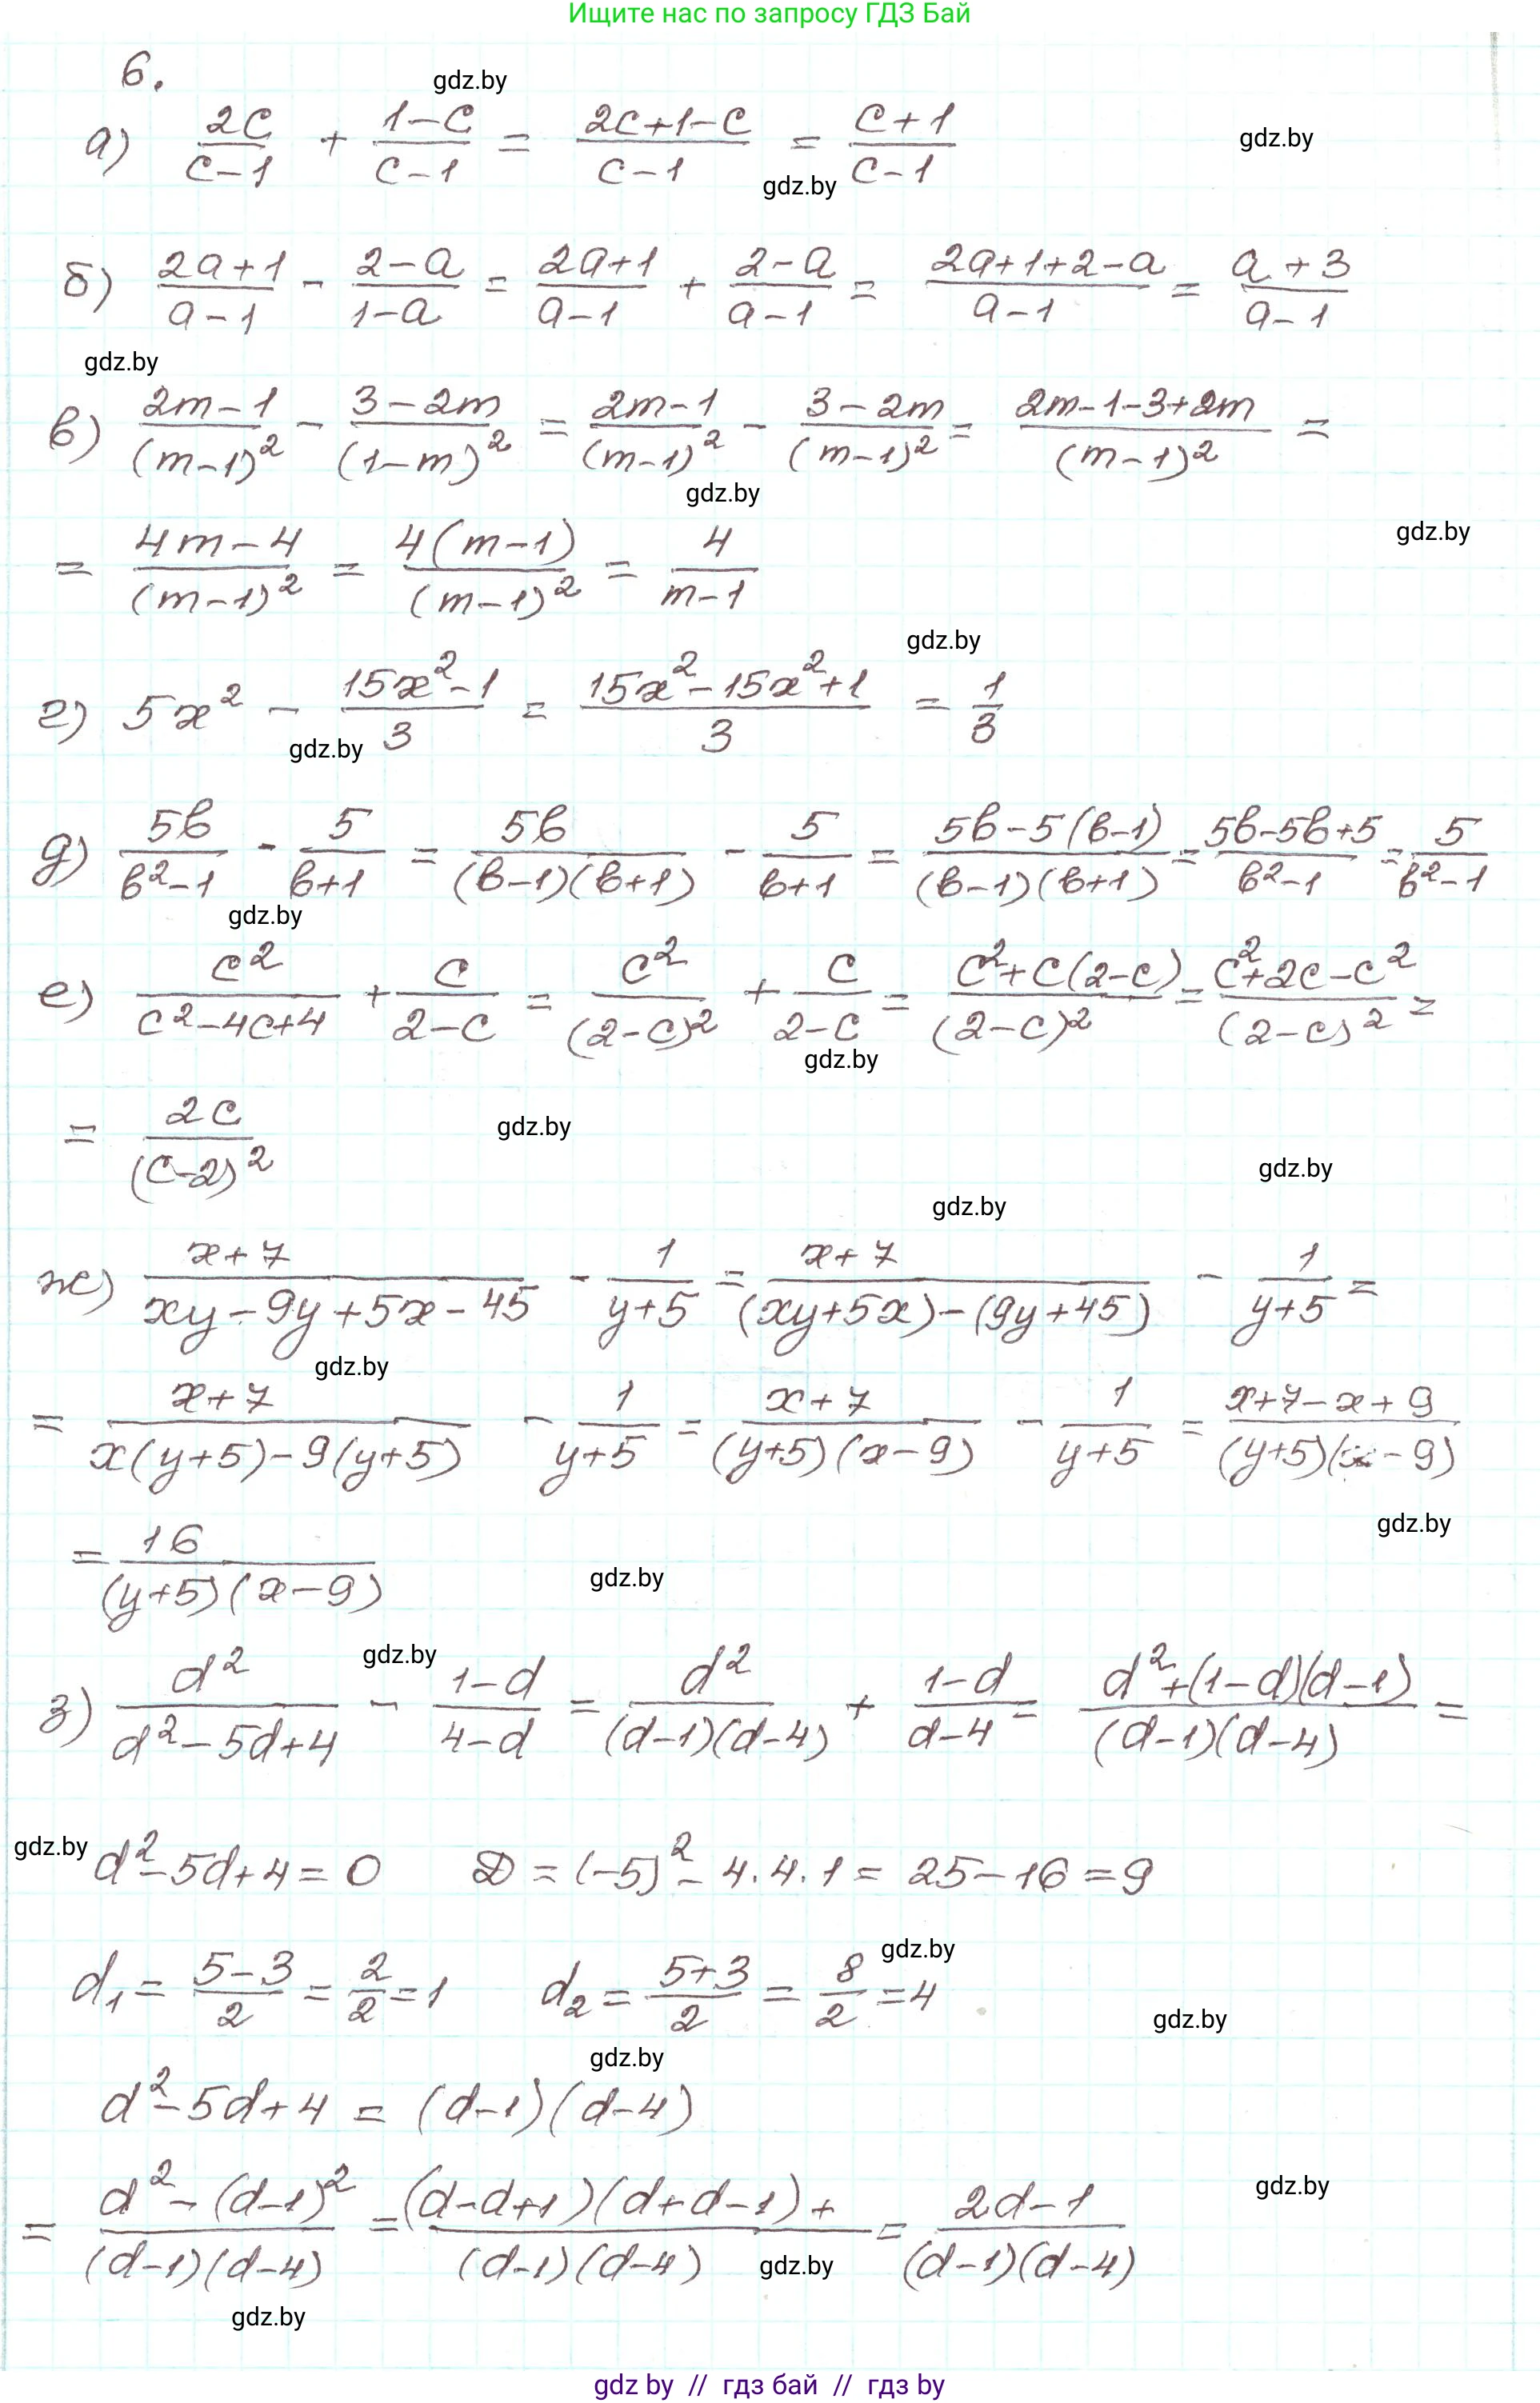 Ищите нас по запросу ГДЗ Бай
6.
gdz.by
а) 2c/(c-1) + (1-c)/(c-1) = (2c+1-c)/(c-1) = (c+1)/(c-1)
gdz.by
gdz.by
б) (2a+1)/(a-1) - (2-a)/(1-a) = (2a+1)/(a-1) + (2-a)/(a-1) = (2a+1+2-a)/(a-1) = (a+3)/(a-1)
gdz.by
в) (2m-1)/(m-1)² - (3-2m)/(1-m)² = (2m-1)/(m-1)² - (3-2m)/(m-1)² = (2m-1-3+2m)/(m-1)² =
gdz.by
gdz.by
= (4m-4)/(m-1)² = 4(m-1)/(m-1)² = 4/(m-1)
gdz.by
г) 5x² - (15x²-1)/3 = (15x²-15x²+1)/3 = 1/3
gdz.by
д) 5b/(b²-1) - 5/(b+1) = 5b/((b-1)(b+1)) - 5/(b+1) = (5b-5(b-1))/((b-1)(b+1)) = (5b-5b+5)/(b²-1) = 5/(b²-1)
gdz.by
е) c²/(c²-4c+4) + c/(2-c) = c²/(2-c)² + c/(2-c) = (c²+c(2-c))/(2-c)² = (c²+2c-c²)/(2-c)² =
gdz.by
= 2c/(c-2)²
gdz.by
gdz.by
gdz.by
ж) (x+7)/(xy-9y+5x-45) - 1/(y+5) = (x+7)/((xy+5x)-(9y+45)) - 1/(y+5) =
gdz.by
= (x+7)/(x(y+5)-9(y+5)) - 1/(y+5) = (x+7)/((y+5)(x-9)) - 1/(y+5) = (x+7-x+9)/((y+5)(x-9))
gdz.by
= 16/((y+5)(x-9))
gdz.by
gdz.by
з) d²/(d²-5d+4) - (1-d)/(4-d) = d²/((d-1)(d-4)) + (1-d)/(d-4) = (d²+(1-d)(d-1))/((d-1)(d-4)) =
gdz.by
d²-5d+4=0 D=(-5)²-4·4·1=25-16=9
gdz.by
d₁ = (5-3)/2 = 2/2 = 1 d₂ = (5+3)/2 = 8/2 = 4
gdz.by
gdz.by
d²-5d+4 = (d-1)(d-4)
gdz.by
= (d²-(d-1)²)/((d-1)(d-4)) = ((d-d+1)(d+d-1)+)/((d-1)(d-4)) = (2d-1)/((d-1)(d-4))
gdz.by
gdz.by
gdz by // гдз бай // гдз by